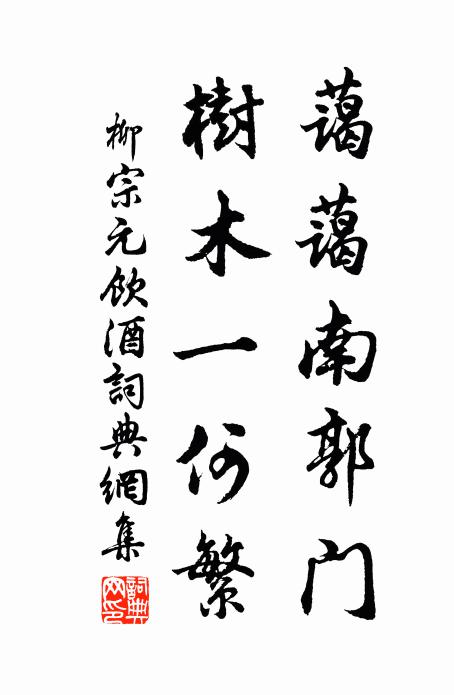 藹藹南郭門
樹木一何繁
柳宗元飲酒詞典網集
詞典網印